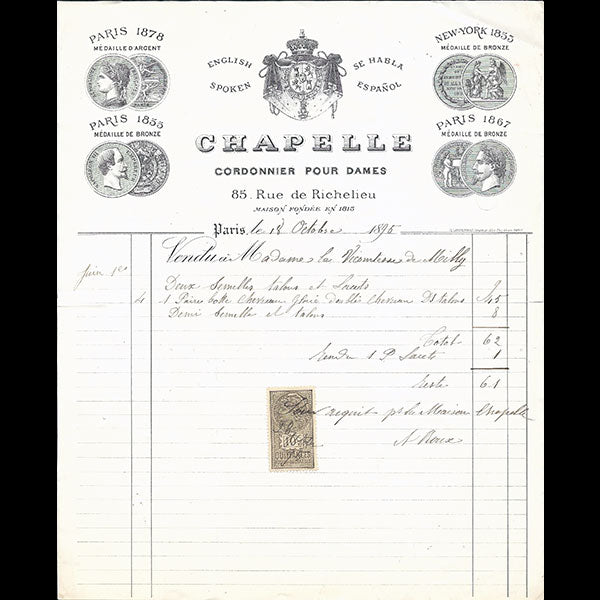 PARIS 1878
MÉDAILLE D'ARGENT
NEW-YORK 1853
MÉDAILLE DE BRONZE
ENGLISH SPOKEN
SE HABLA ESPAÑOL
PARIS 1855
MÉDAILLE DE BRONZE
PARIS 1867
MÉDAILLE DE BRONZE
CHAPELLE
CORDONNIER POUR DAMES
85. Rue de Richelieu
MAISON FONDÉE EN 1815
Paris, le 12 Octobre 1895
Vendu à Madame la Vicomtesse de Milly
Juin
Deux Semelles talons et
4 1 Paire Botte Chevreau Glacé Chevreau Ds talons 45
Demi Semelle et talons 8
Total 62
Rendu 1 P. 1
Reste 61
Pour acquit pr la Maison Chapelle
A Roux
10